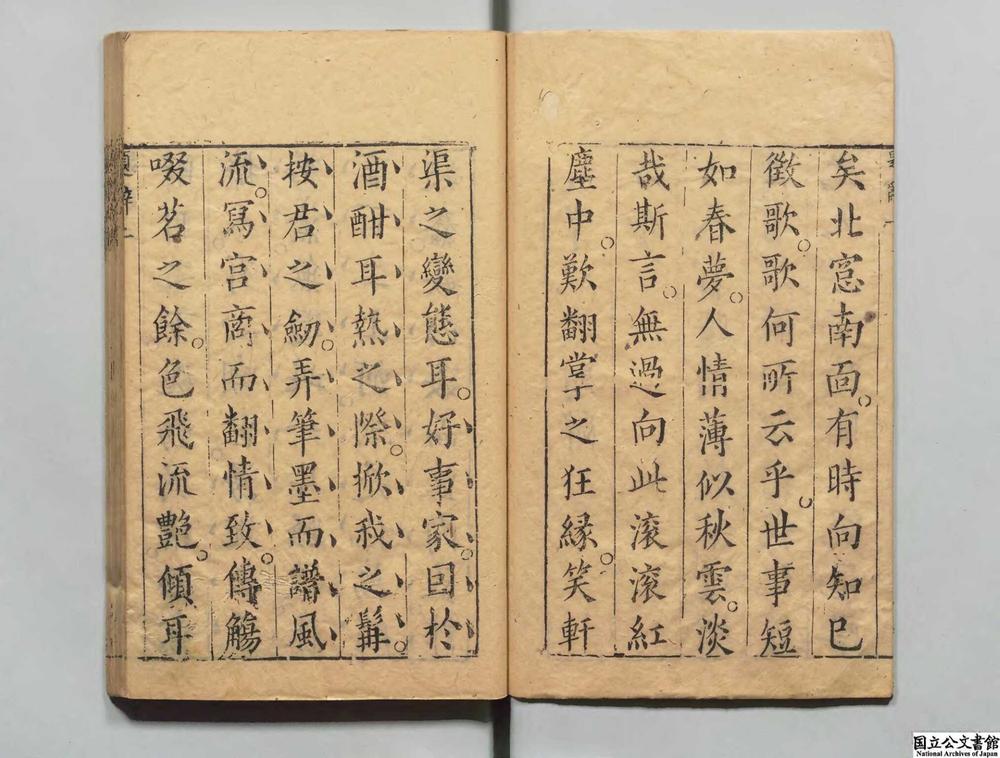 矣北窓南面。有時向知已
徵歌。歌何所云乎。世事短
如春夢。人情薄似秋雲。淡
哉斯言。無過向此滚滚紅
塵中。歎翻掌之狂緣。笑軒
渠之變態耳。好事家。回於
酒酣耳熱之際。掀我之髯。
按君之劒。弄筆墨而譜風
流。冩宫商而翻情致。傳觴
啜茗之餘。色飛流艶。傾耳
題辭 二
国立公文書館
National Archives of Japan